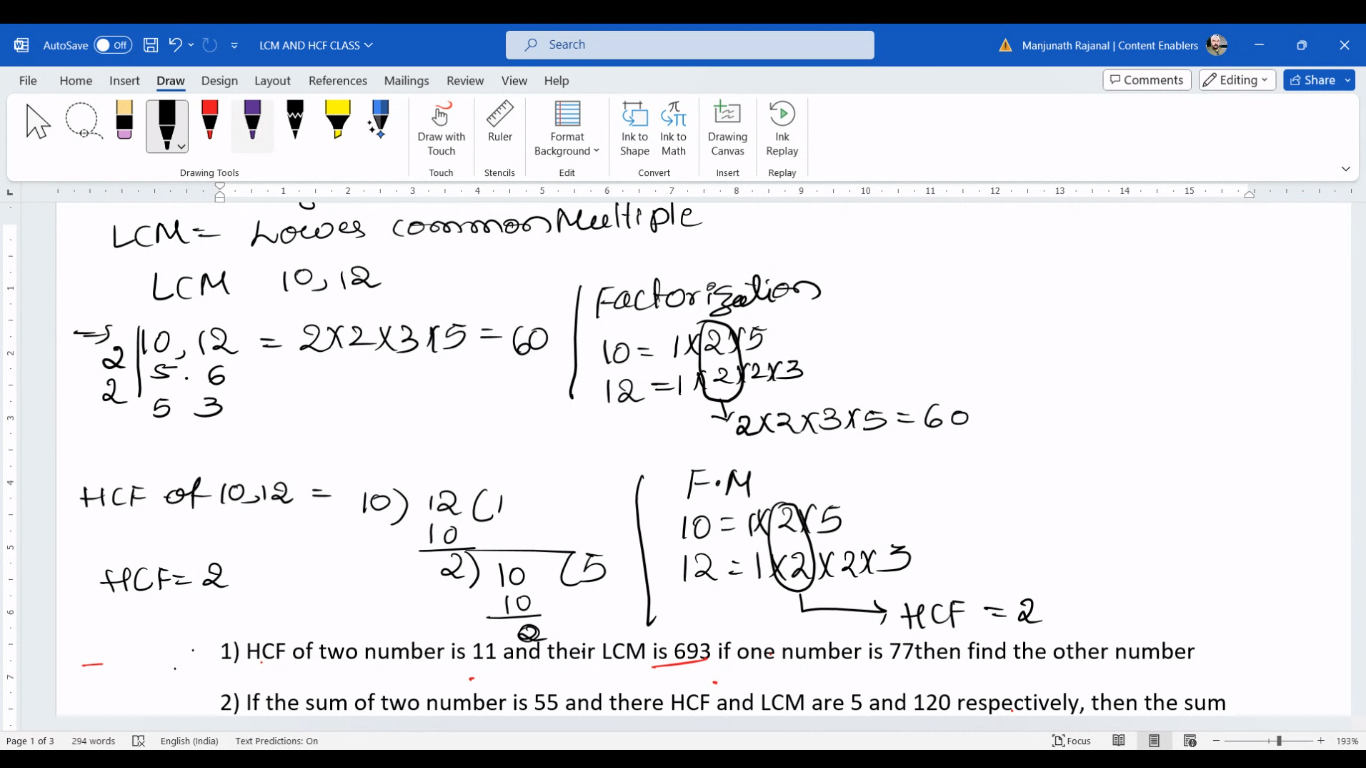 AutoSave Off LCM AND HCF CLASS Search Manjunath Rajanal | Content Enablers
File Home Insert Draw Design Layout References Mailings Review View Help Comments Editing Share
Draw with Touch Ruler Format Background Ink to Shape Ink to Math Drawing Canvas Ink Replay
Drawing Tools Touch Stencils Edit Convert Insert Replay
1 2 3 4 5 6 7 8 9 10 11 12 13 14 15
LCM = Lowes common Multiple
LCM 10, 12
2 | 10, 12 = 2x2x3x5 = 60
2 | 5. 6
5 3
Factorization
10 = 1x2x5
12 = 1x2x2x3
2x2x3x5 = 60
HCF of 10,12 = 10) 12 (1
10
2) 10 (5
10
HCF = 2
F.M
10 = 1x2x5
12 = 1x2x2x3
HCF = 2
1) HCF of two number is 11 and their LCM is 693 if one number is 77then find the other number
2) If the sum of two number is 55 and there HCF and LCM are 5 and 120 respectively, then the sum
Page 1 of 3 294 words English (India) Text Predictions: On Focus 193%